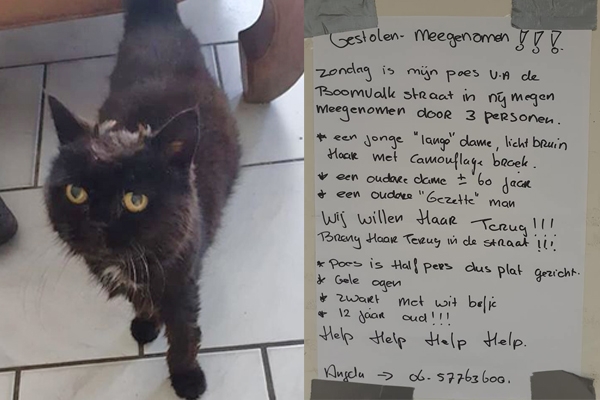 Gestolen - Meegenomen !!!
Zondag is mijn poes V.A de
Boomvalk straat in nijmegen
meegenomen door 3 personen.
* een jonge "lange" dame, licht bruin
Haar met camouflage broek.
* een oudere dame ± 60 jaar
* een oudere "Gezette" man
Wij willen Haar Terug!!!
Breng Haar Terug in de straat !!!
* Poes is Half pers dus plat gezicht.
* Gele ogen
* zwart met wit befje
* 12 jaar oud!!!
Help Help Help Help.
Angela → 06-57763600.